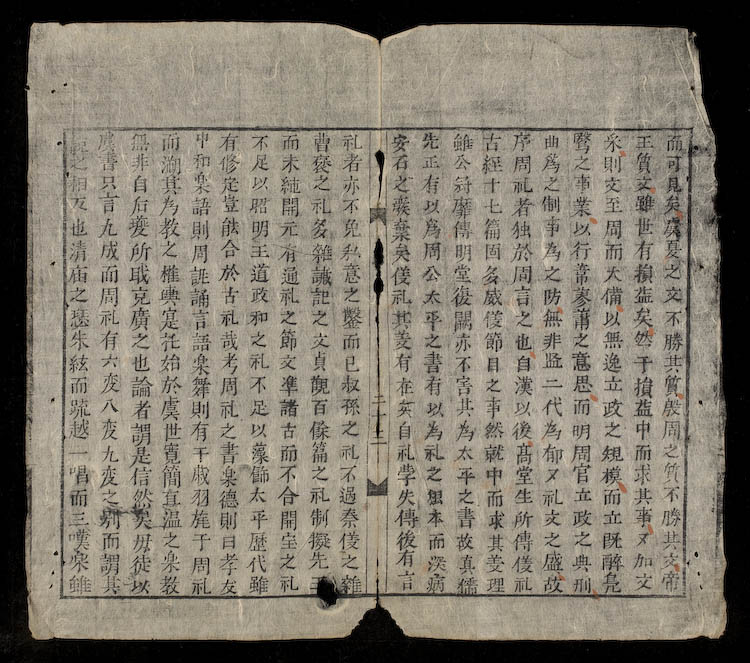 而可見矣虞夏之文不勝其質殷周之質不勝其文帝
王質文雖世有損益矣然于損益中而求其事又加文
采則文至周而大備以無逸立政之規模而立既醉鳧
鷖之事業以行葦蓼蕭之意思而明周官立政之典刑
曲爲之制事爲之防無非監二代爲郁〻礼文之盛故
序周礼者独於周言之也自漢以後高堂生所傳儀礼
古経十七篇固多威儀節目之事然就中而求其義理
雖公符靡傳明堂復闕亦不害其爲太平之書故真儒
先正有以爲周公太平之書有以爲礼之根本而深病
安石之廢棄矣儀礼其義有在矣自礼學失傳後有言
二十二
礼者亦不免私意之鑿而已叔孫之礼不過秦儀之雜
曹褒之礼多雜讖記之文貞觀百餘篇之礼制擬先王
而未純開元有通礼之節文準諸古而不合開宝之礼
不足以昭明王道政和之礼不足以藻飾太平歴代雖
有修定豈能合於古礼哉考周礼之書楽德則曰孝友
中和楽語則周誕誦言語楽舞則有干戚羽旄于周礼
而溯其為教之権輿寔托始於虞世寬簡直温之楽教
無非自后夔所敢克廣之也論者謂是信然矣毋徒以
虞書只言九成而周礼有六変八変九変之别而謂其
之相反也清庙之瑟朱絃而疏越一唱而三嘆楽雖